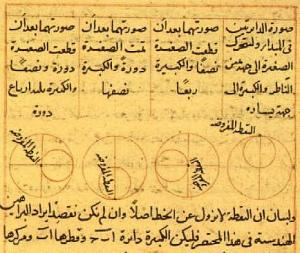 صورة الدايرتين
في المبدا ولنتحرك
الصغيرة الى جهة
الناظر والكبيرة الى
جهة يساره
صورتهما بعد ان
قطعت الصغيرة
نصفا والكبيرة
ربعا
صورتهما بعد ان
تمت الصغيرة
دورة والكبيرة
نصفها
صورتهما بعد ان
قطعت الصغيرة
دورة ونصفا
والكبيرة ارباع
دورة
النقطة المفروضة
النقطة المفروضة
النقطة المفروضة
ولبيان ان النقطة لا يزول عن الخط اصلا وان لم نكن نقصد ايراد البراهين
الهندسية في هذا المختصر فليكن الكبيرة دائرة اب وقطرها اب ومركزها